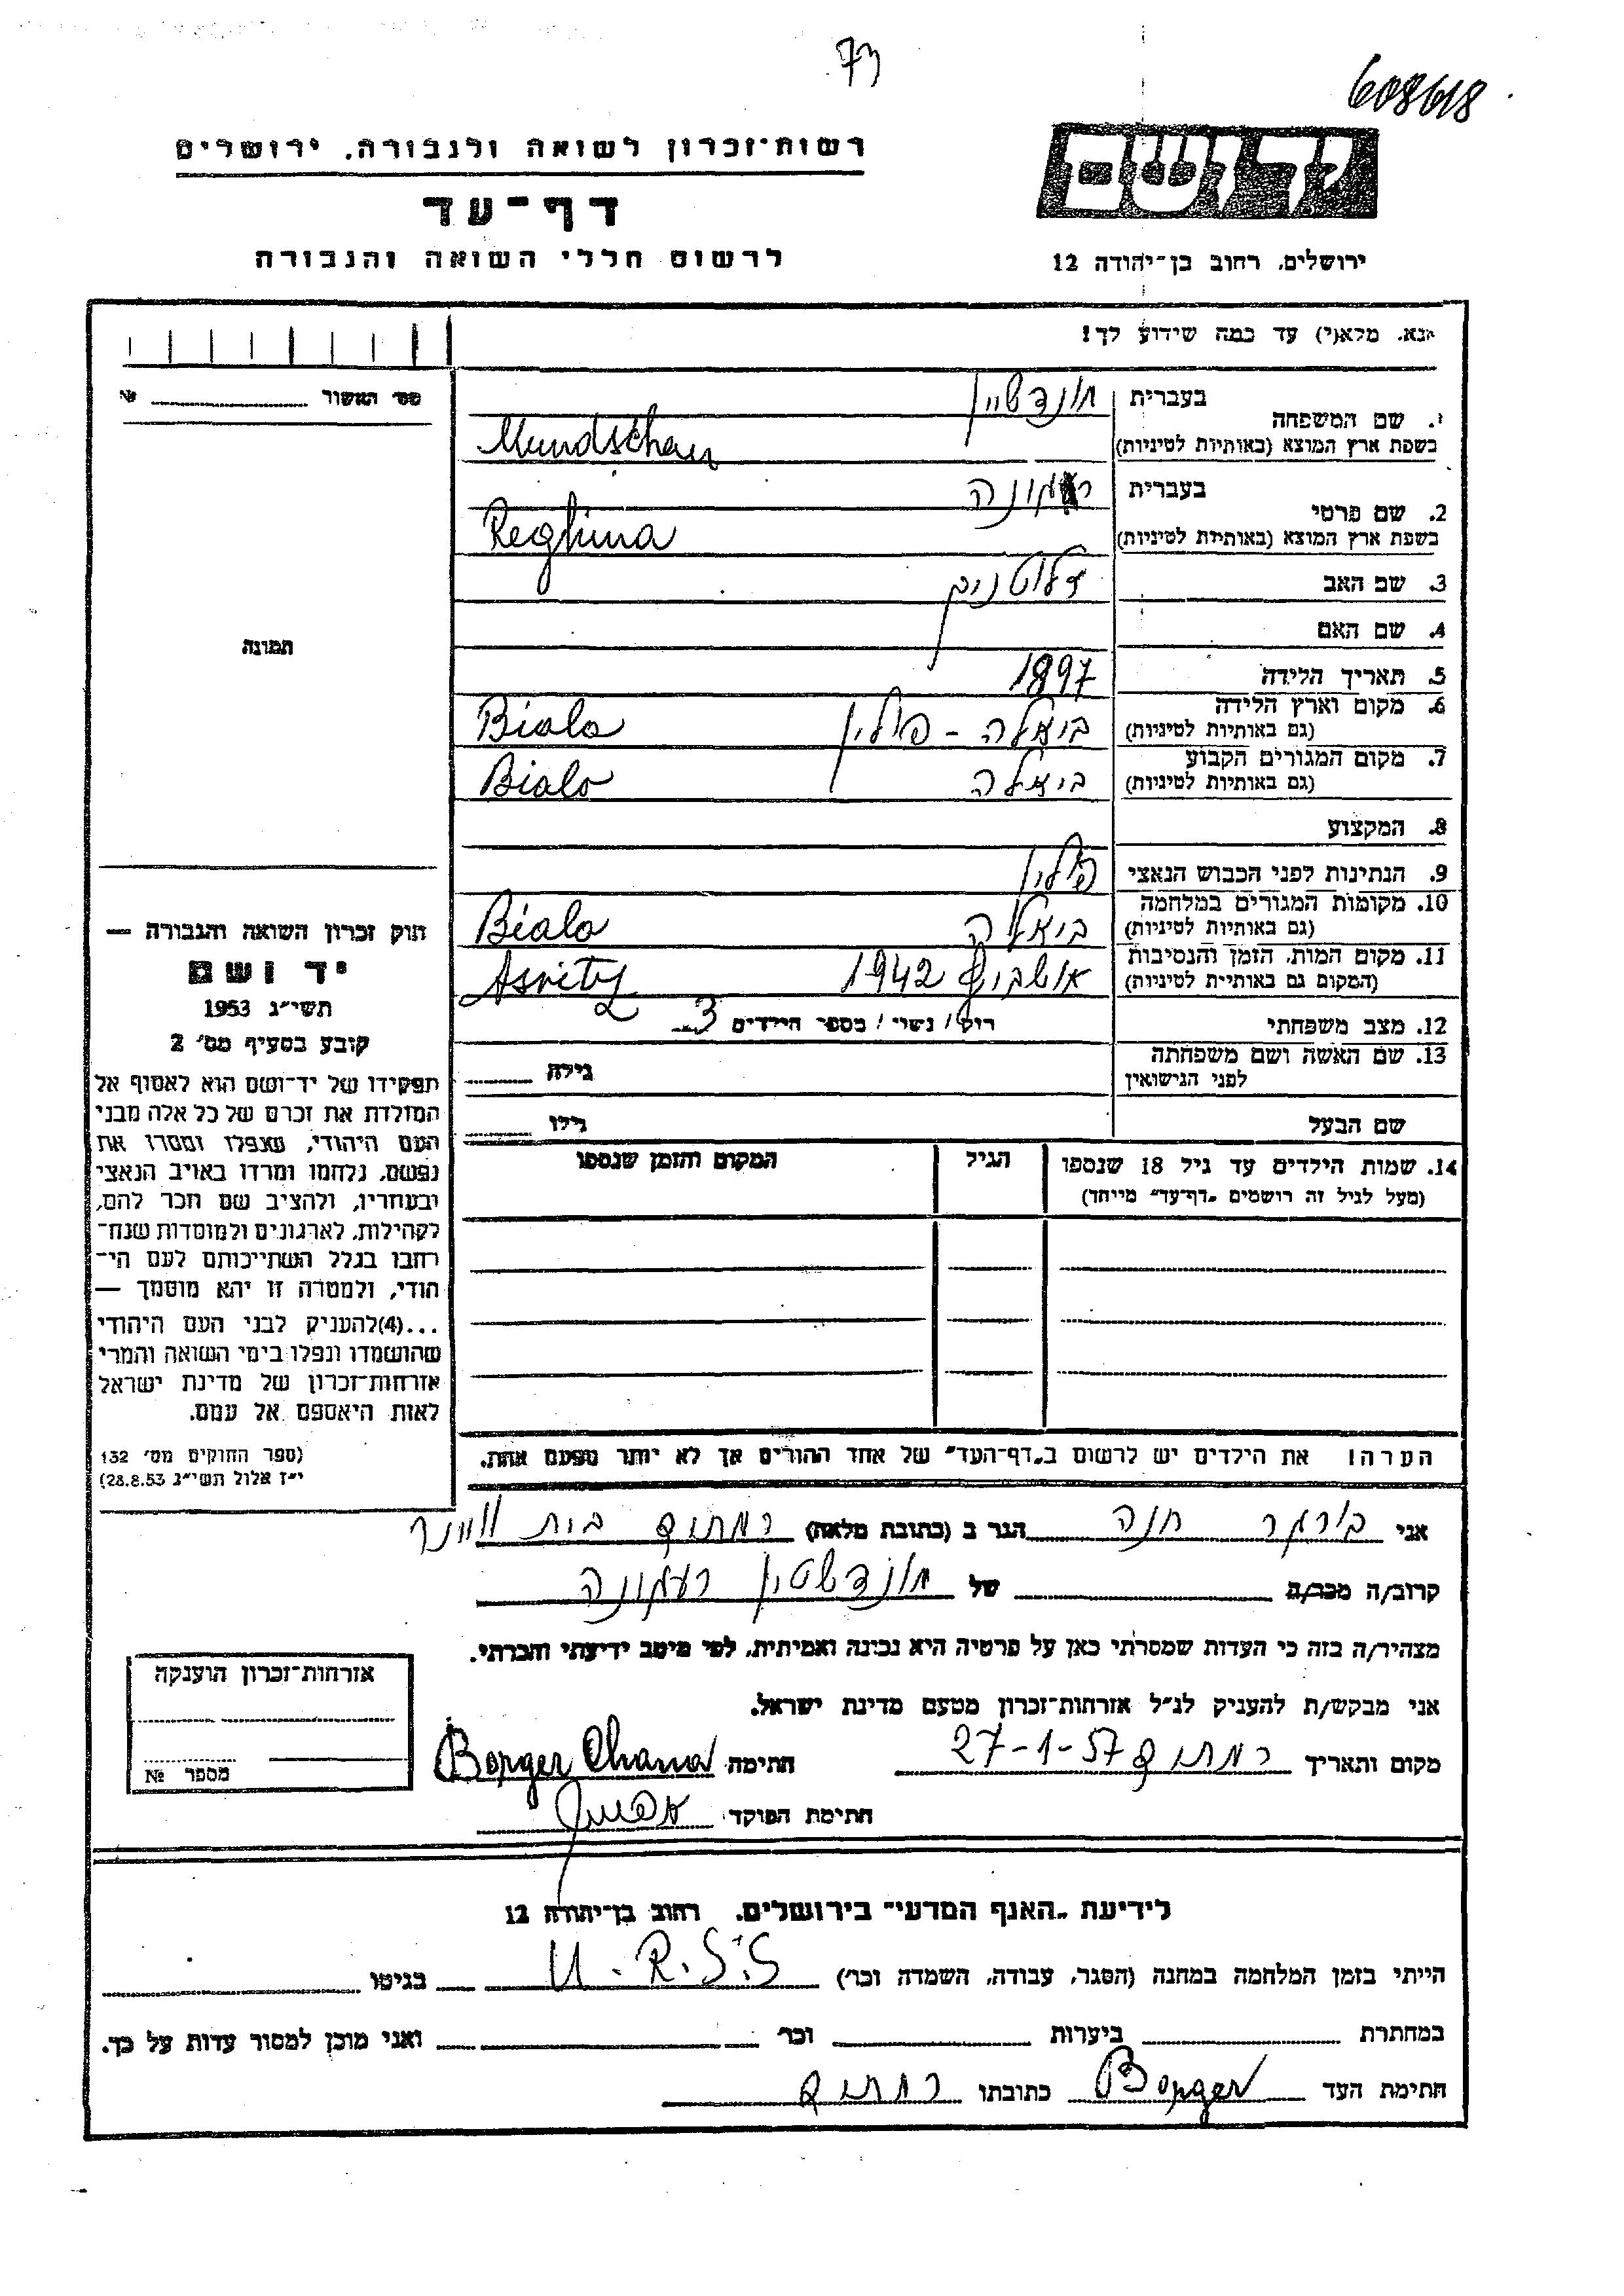 608618
רשות־זכרון לשואה ולגבורה, ירושלים
דף־עד
לרשום חללי השואה והגבורה
יד ושם
ירושלים, רחוב בן־יהודה 12
אנא, מלא(י) עד כמה שידוע לך!
מס׳ האשור № 
1. שם המשפחה
בעברית מונדשיין
בשפת ארץ המוצא (באותיות לטיניות) Mundschan
2. שם פרטי
בעברית רגונה
בשפת ארץ המוצא (באותיות לטיניות) Reghina
3. שם האב
4. שם האם
5. תאריך הלידה 1897
6. מקום וארץ הלידה ביאלה - פולין Biala
(גם באותיות לטיניות)
7. מקום המגורים הקבוע ביאלה Biala
(גם באותיות לטיניות)
8. המקצוע
9. הנתינות לפני הכבוש הנאצי פולין
10. מקומות המגורים במלחמה ביאלה Biala
(גם באותיות לטיניות)
11. מקום המות, הזמן והנסיבות 1942
(המקום גם באותיות לטיניות)
12. מצב משפחתי רוק / נשוי / מספר הילדים 3
13. שם האשה ושם משפחתה
לפני הנישואין
גילה
שם הבעל גילו
14. שמות הילדים עד גיל 18 שנספו הגיל המקום והזמן שנספו
(מעל לגיל זה רושמים „דף־עד” מייחד)
הערה: את הילדים יש לרשום ב„דף־העד” של אחד ההורים אך לא יותר מפעם אחת.
תמונה
חוק זכרון השואה והגבורה —
יד ושם
תשי״ג 1953
קובע בסעיף מס׳ 2
תפקידו של יד־ושם הוא לאסוף אל
המולדת את זכרם של כל אלה מבני
העם היהודי, שנפלו ומסרו את
נפשם, נלחמו ומרדו באויב הנאצי
ובעוזריו, ולהציב שם וזכר להם,
לקהילות, לארגונים ולמוסדות שנח־
רבו בגלל השתייכותם לעם הי־
הודי, ולמטרה זו יהא מוסמך —
...(4)להעניק לבני העם היהודי
שהושמדו ונפלו בימי השואה והמרי
אזרחות־זכרון של מדינת ישראל
לאות היאספם אל עמם.
(ספר החוקים מס׳ 132
י״ז אלול תשי״ג 28.8.53)
אני בורגר חנה הגר ב (כתובת מלאה) בית
קרוב/ה מכר/ה של מונדשטין רגונה
מצהיר/ה בזה כי העדות שמסרתי כאן על פרטיה היא נכונה ואמיתית, לפי מיטב ידיעתי והכרתי.
אני מבקש/ת להעניק לנ״ל אזרחות־זכרון מטעם מדינת ישראל.
מקום ותאריך 27-1-57 חתימה Borger Chana
חתימת הפוקד
אזרחות־זכרון הוענקה
מספר №
לידיעת „האגף המדעי” בירושלים, רחוב בן־יהודה 12
הייתי בזמן המלחמה במחנה (הסגר, עבודה, השמדה וכו׳) U.R.S.S בגיטו
במחתרת ביערות וכו׳ ואני מוכן למסור עדות על כך.
חתימת העד Borger כתובתו